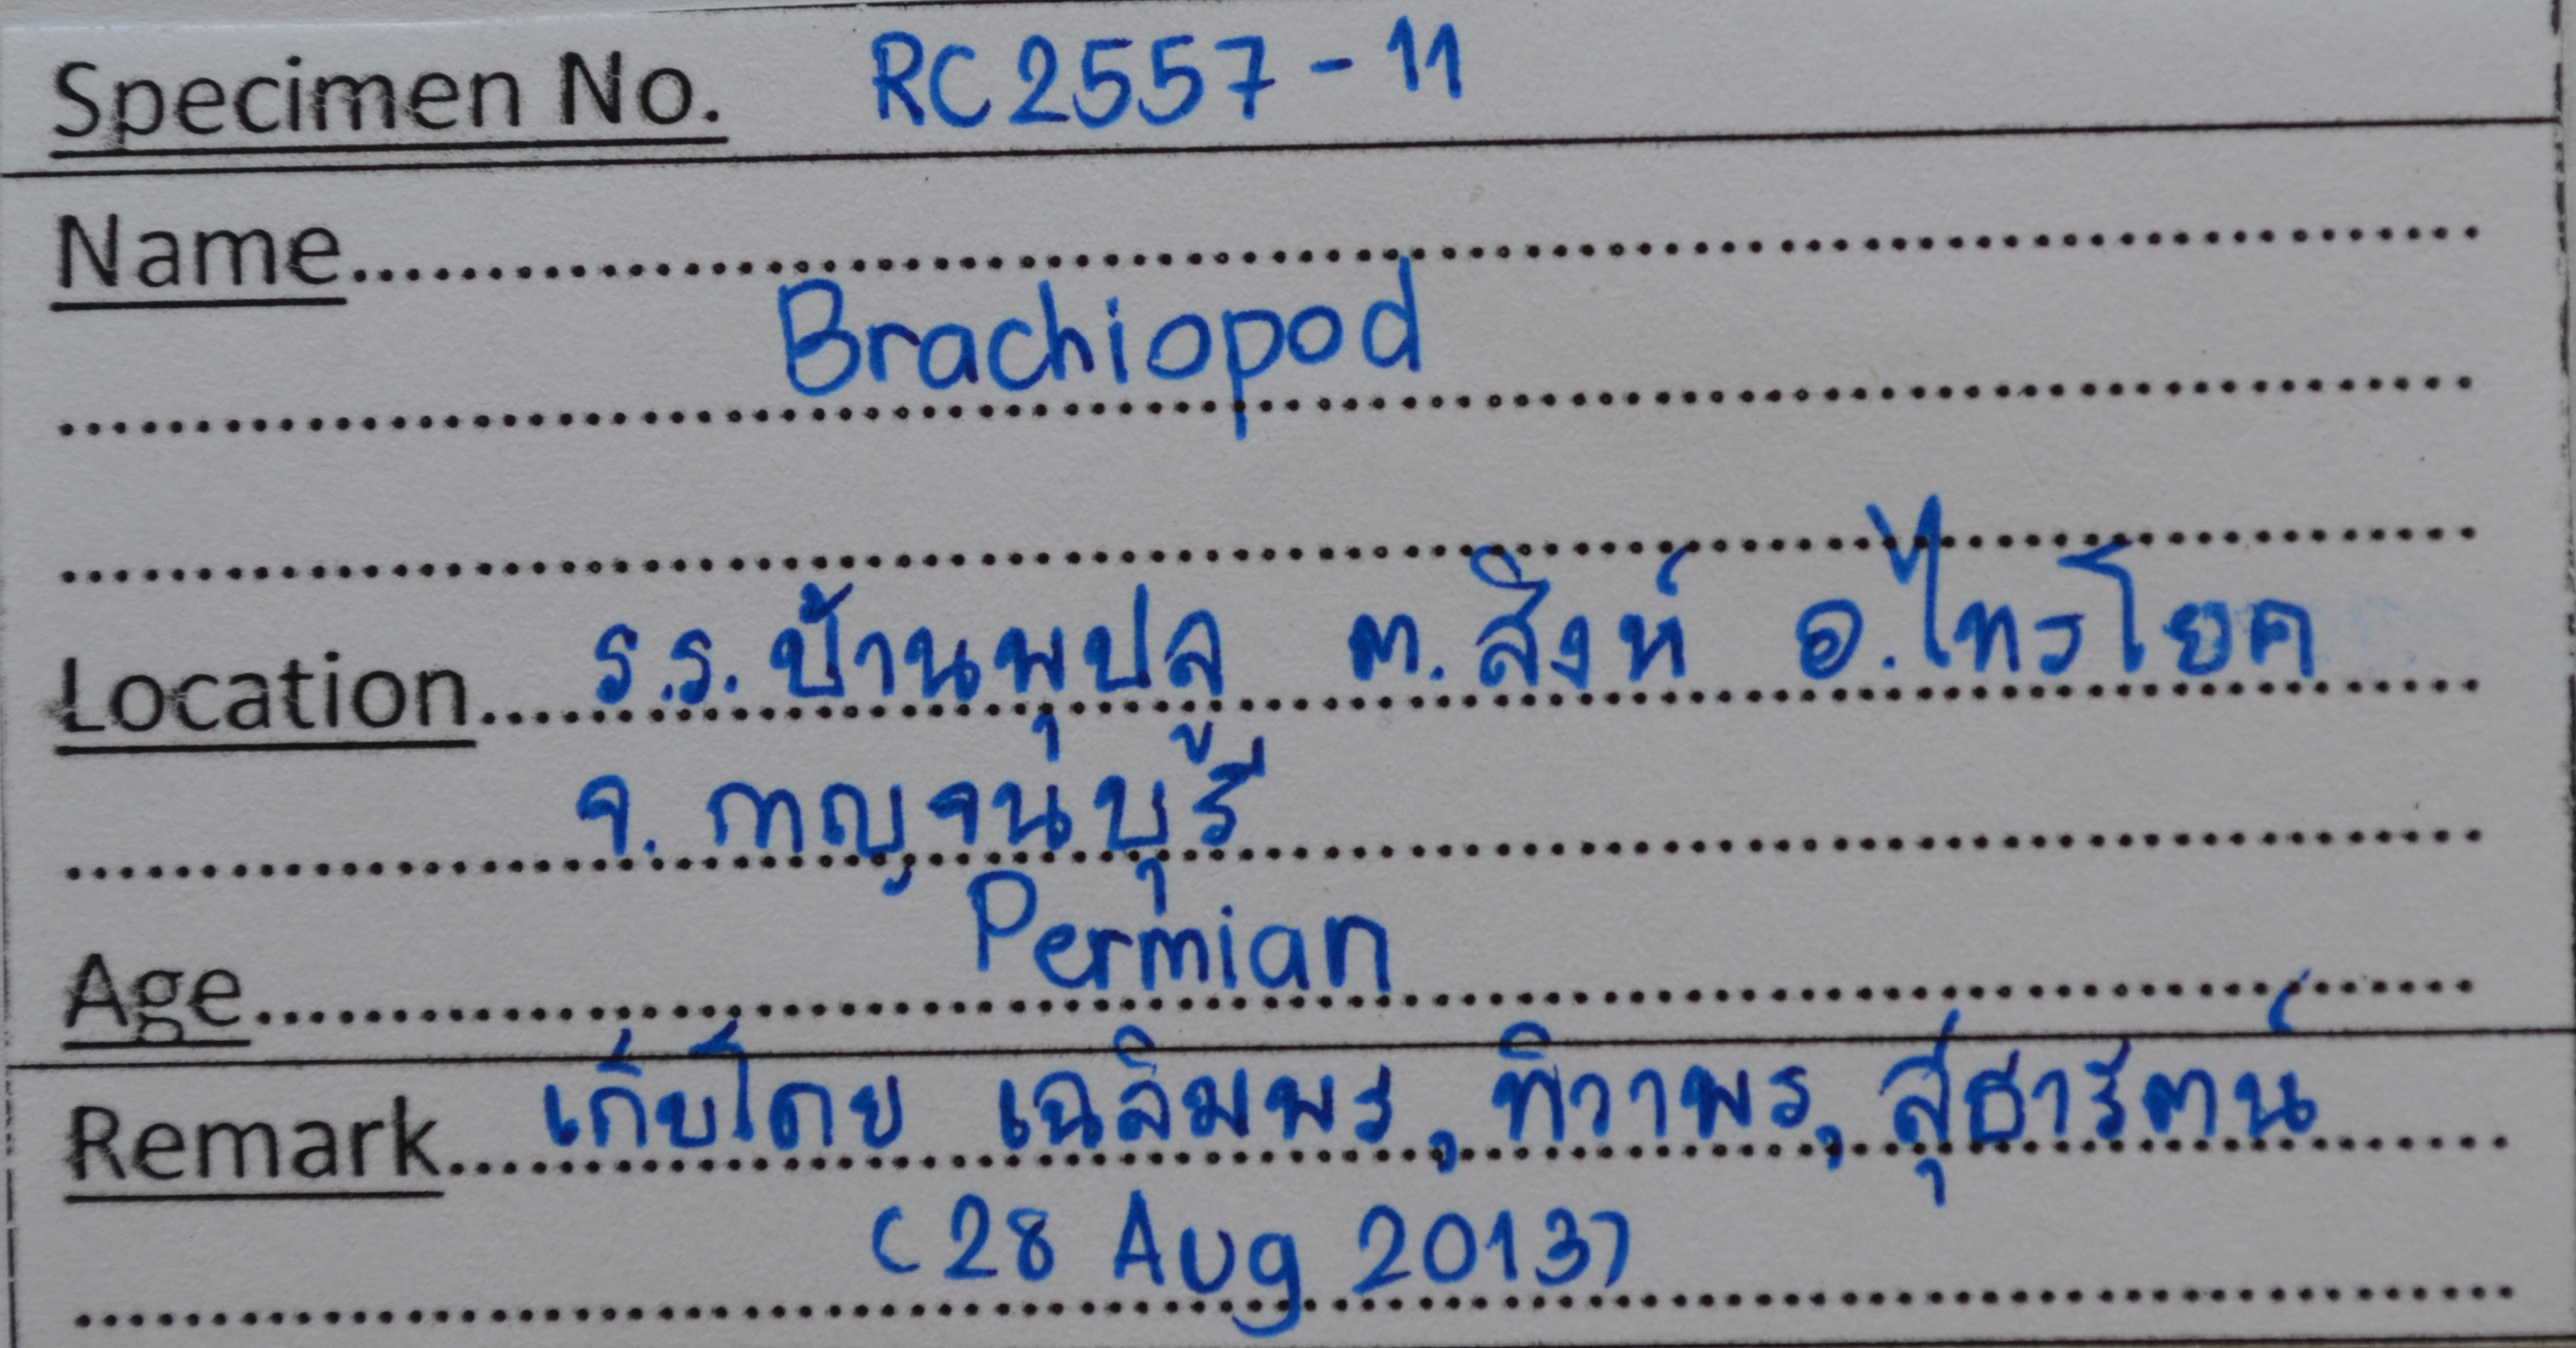 Specimen No. RC2557-11
Name
Brachiopod
Location ร.ร.บ้านพุปลู ต.สิงห์ อ.ไทรโยค
จ.กาญจนบุรี
Age Permian
Remark เก็บโดย เฉลิมพร, ทิวาพร, สุธารัตน์
(28 Aug 2013)